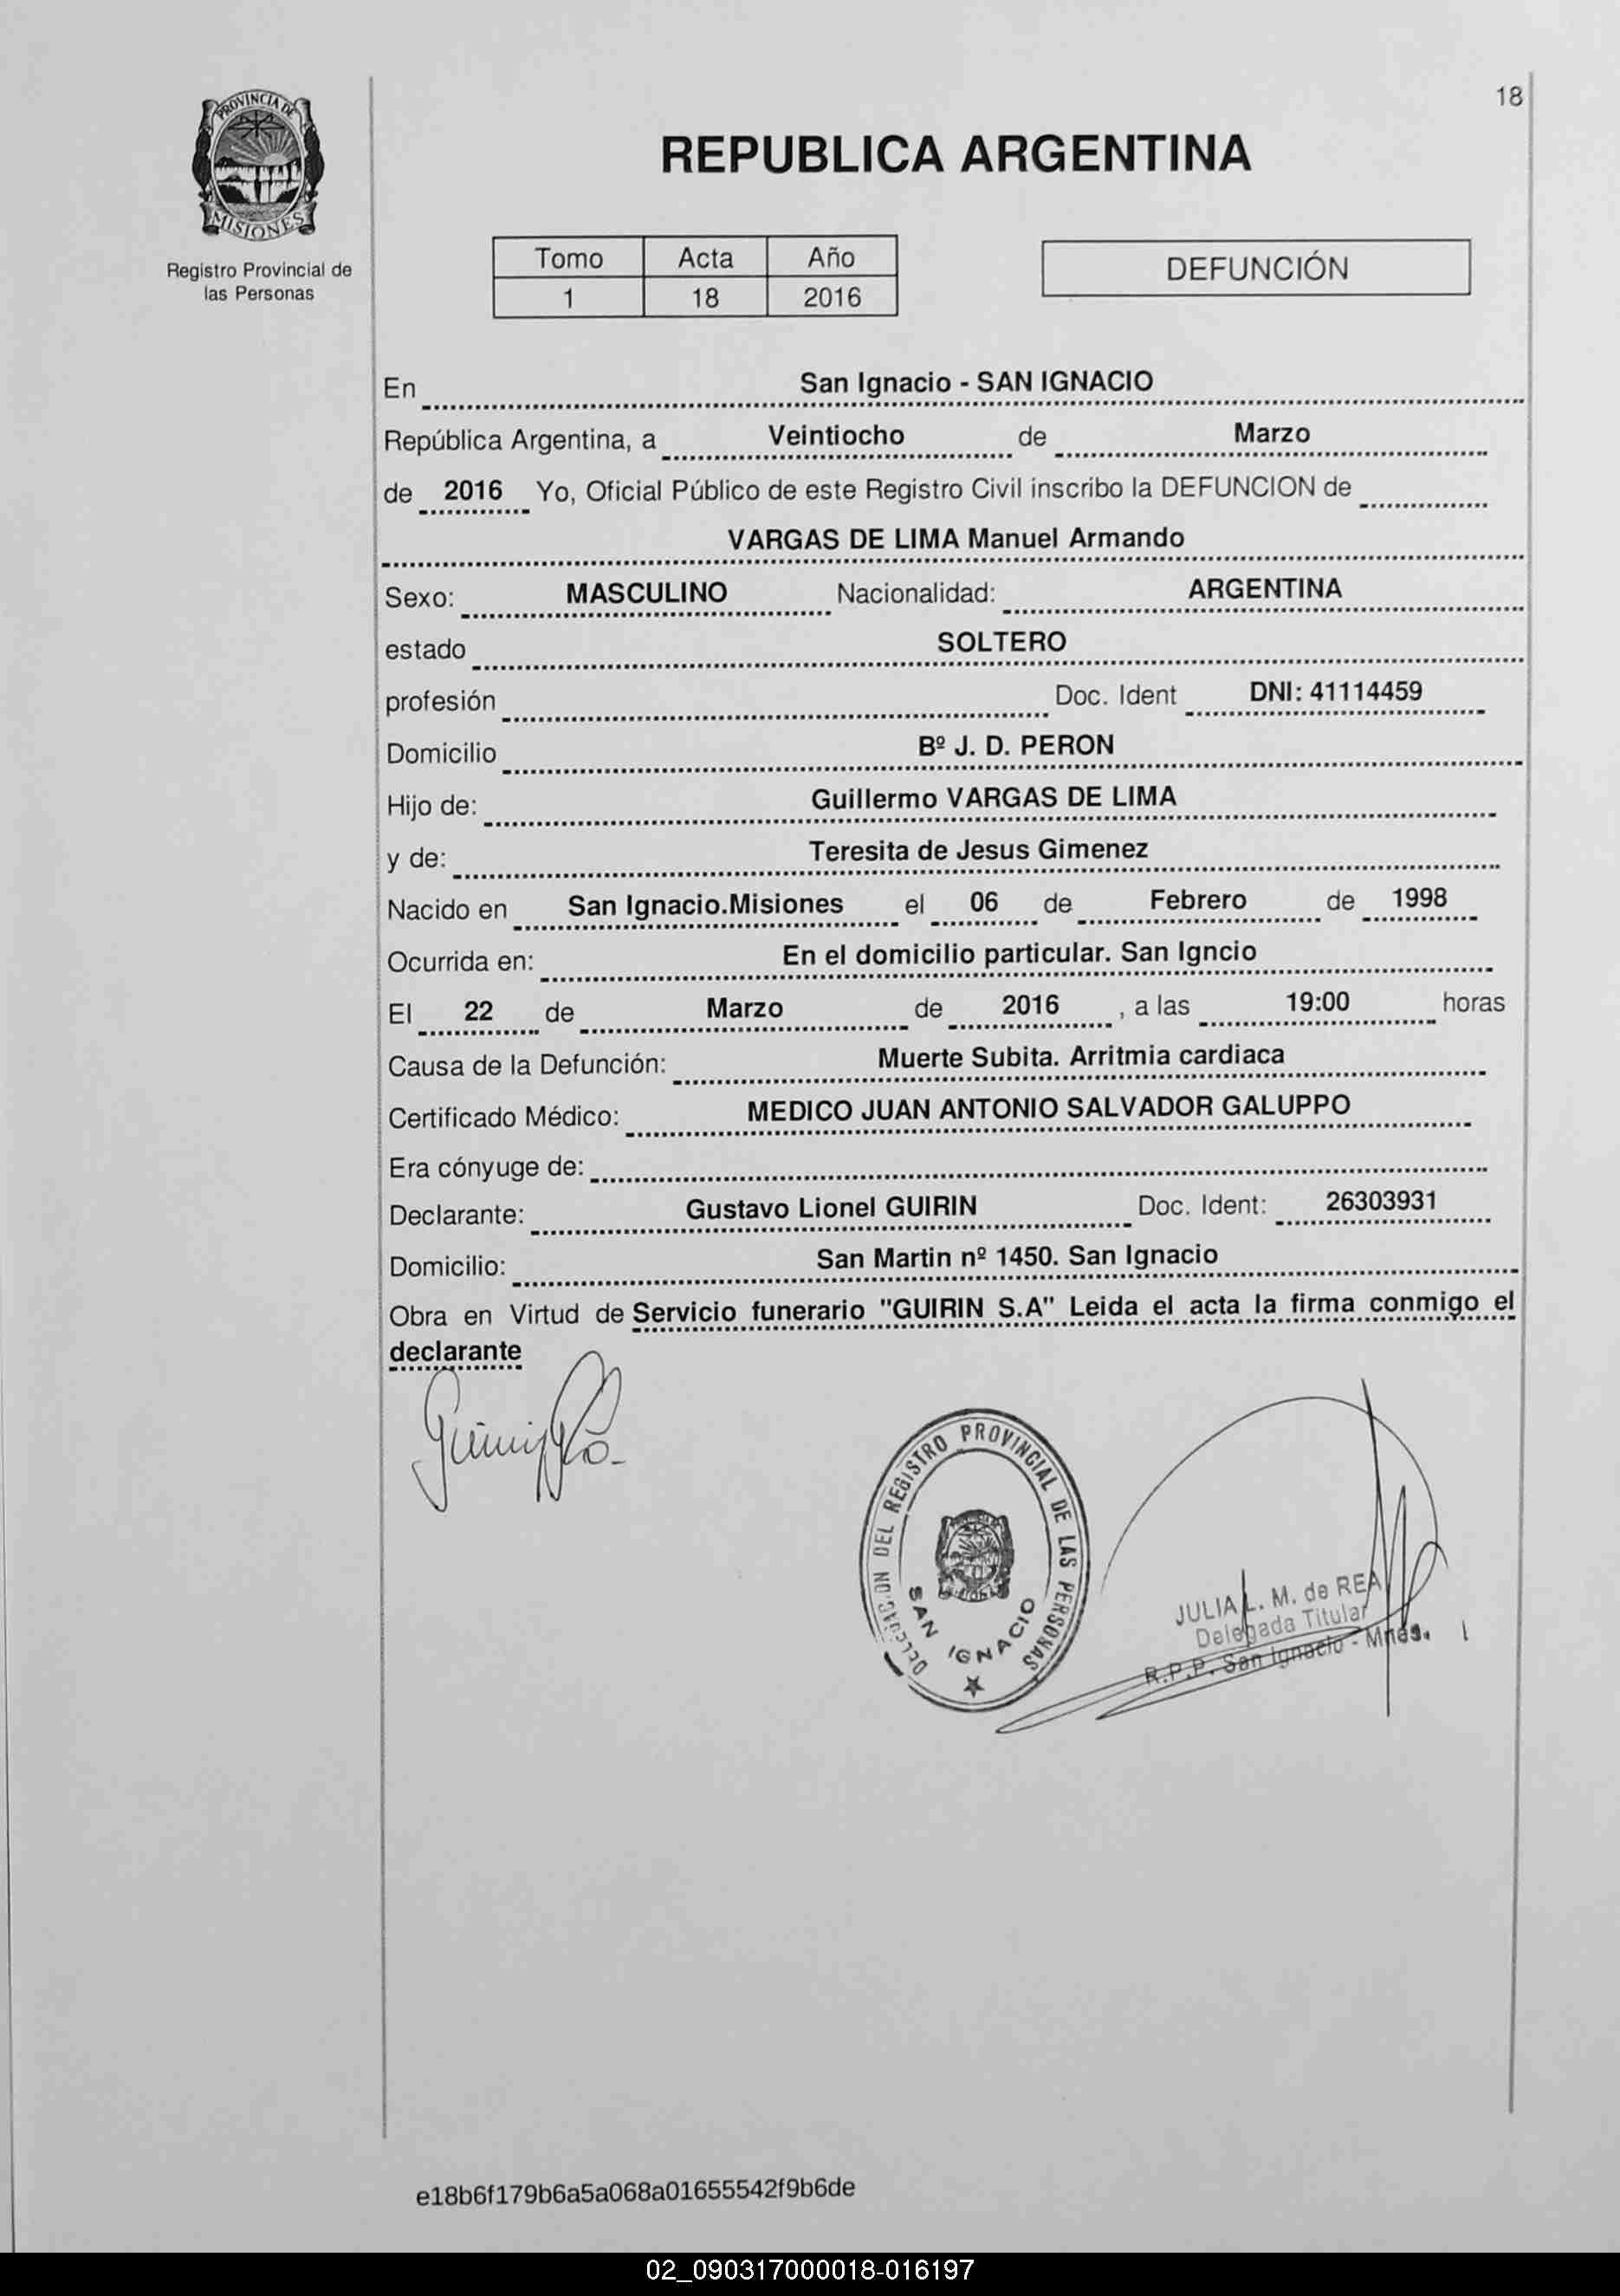 18
PROVINCIA DE
MISIONES
Registro Provincial de
las Personas
REPUBLICA ARGENTINA
Tomo Acta Año
1 18 2016
DEFUNCIÓN
En San Ignacio - SAN IGNACIO
República Argentina, a Veintiocho de Marzo
de 2016 Yo, Oficial Público de este Registro Civil inscribo la DEFUNCION de
VARGAS DE LIMA Manuel Armando
Sexo: MASCULINO Nacionalidad: ARGENTINA
estado SOLTERO
profesión Doc. Ident DNI: 41114459
Domicilio Bº J. D. PERON
Hijo de: Guillermo VARGAS DE LIMA
y de: Teresita de Jesus Gimenez
Nacido en San Ignacio.Misiones el 06 de Febrero de 1998
Ocurrida en: En el domicilio particular. San Igncio
El 22 de Marzo de 2016 , a las 19:00 horas
Causa de la Defunción: Muerte Subita. Arritmia cardiaca
Certificado Médico: MEDICO JUAN ANTONIO SALVADOR GALUPPO
Era cónyuge de:
Declarante: Gustavo Lionel GUIRIN Doc. Ident: 26303931
Domicilio: San Martin nº 1450. San Ignacio
Obra en Virtud de Servicio funerario "GUIRIN S.A" Leida el acta la firma conmigo el
declarante
DELEGACION DEL REGISTRO PROVINCIAL DE LAS PERSONAS
SAN IGNACIO
JULIA L. M. de REA
Delegada Titular
R.P.P. San Ignacio - Mnes.
e18b6f179b6a5a068a01655542f9b6de
02_090317000018-016197